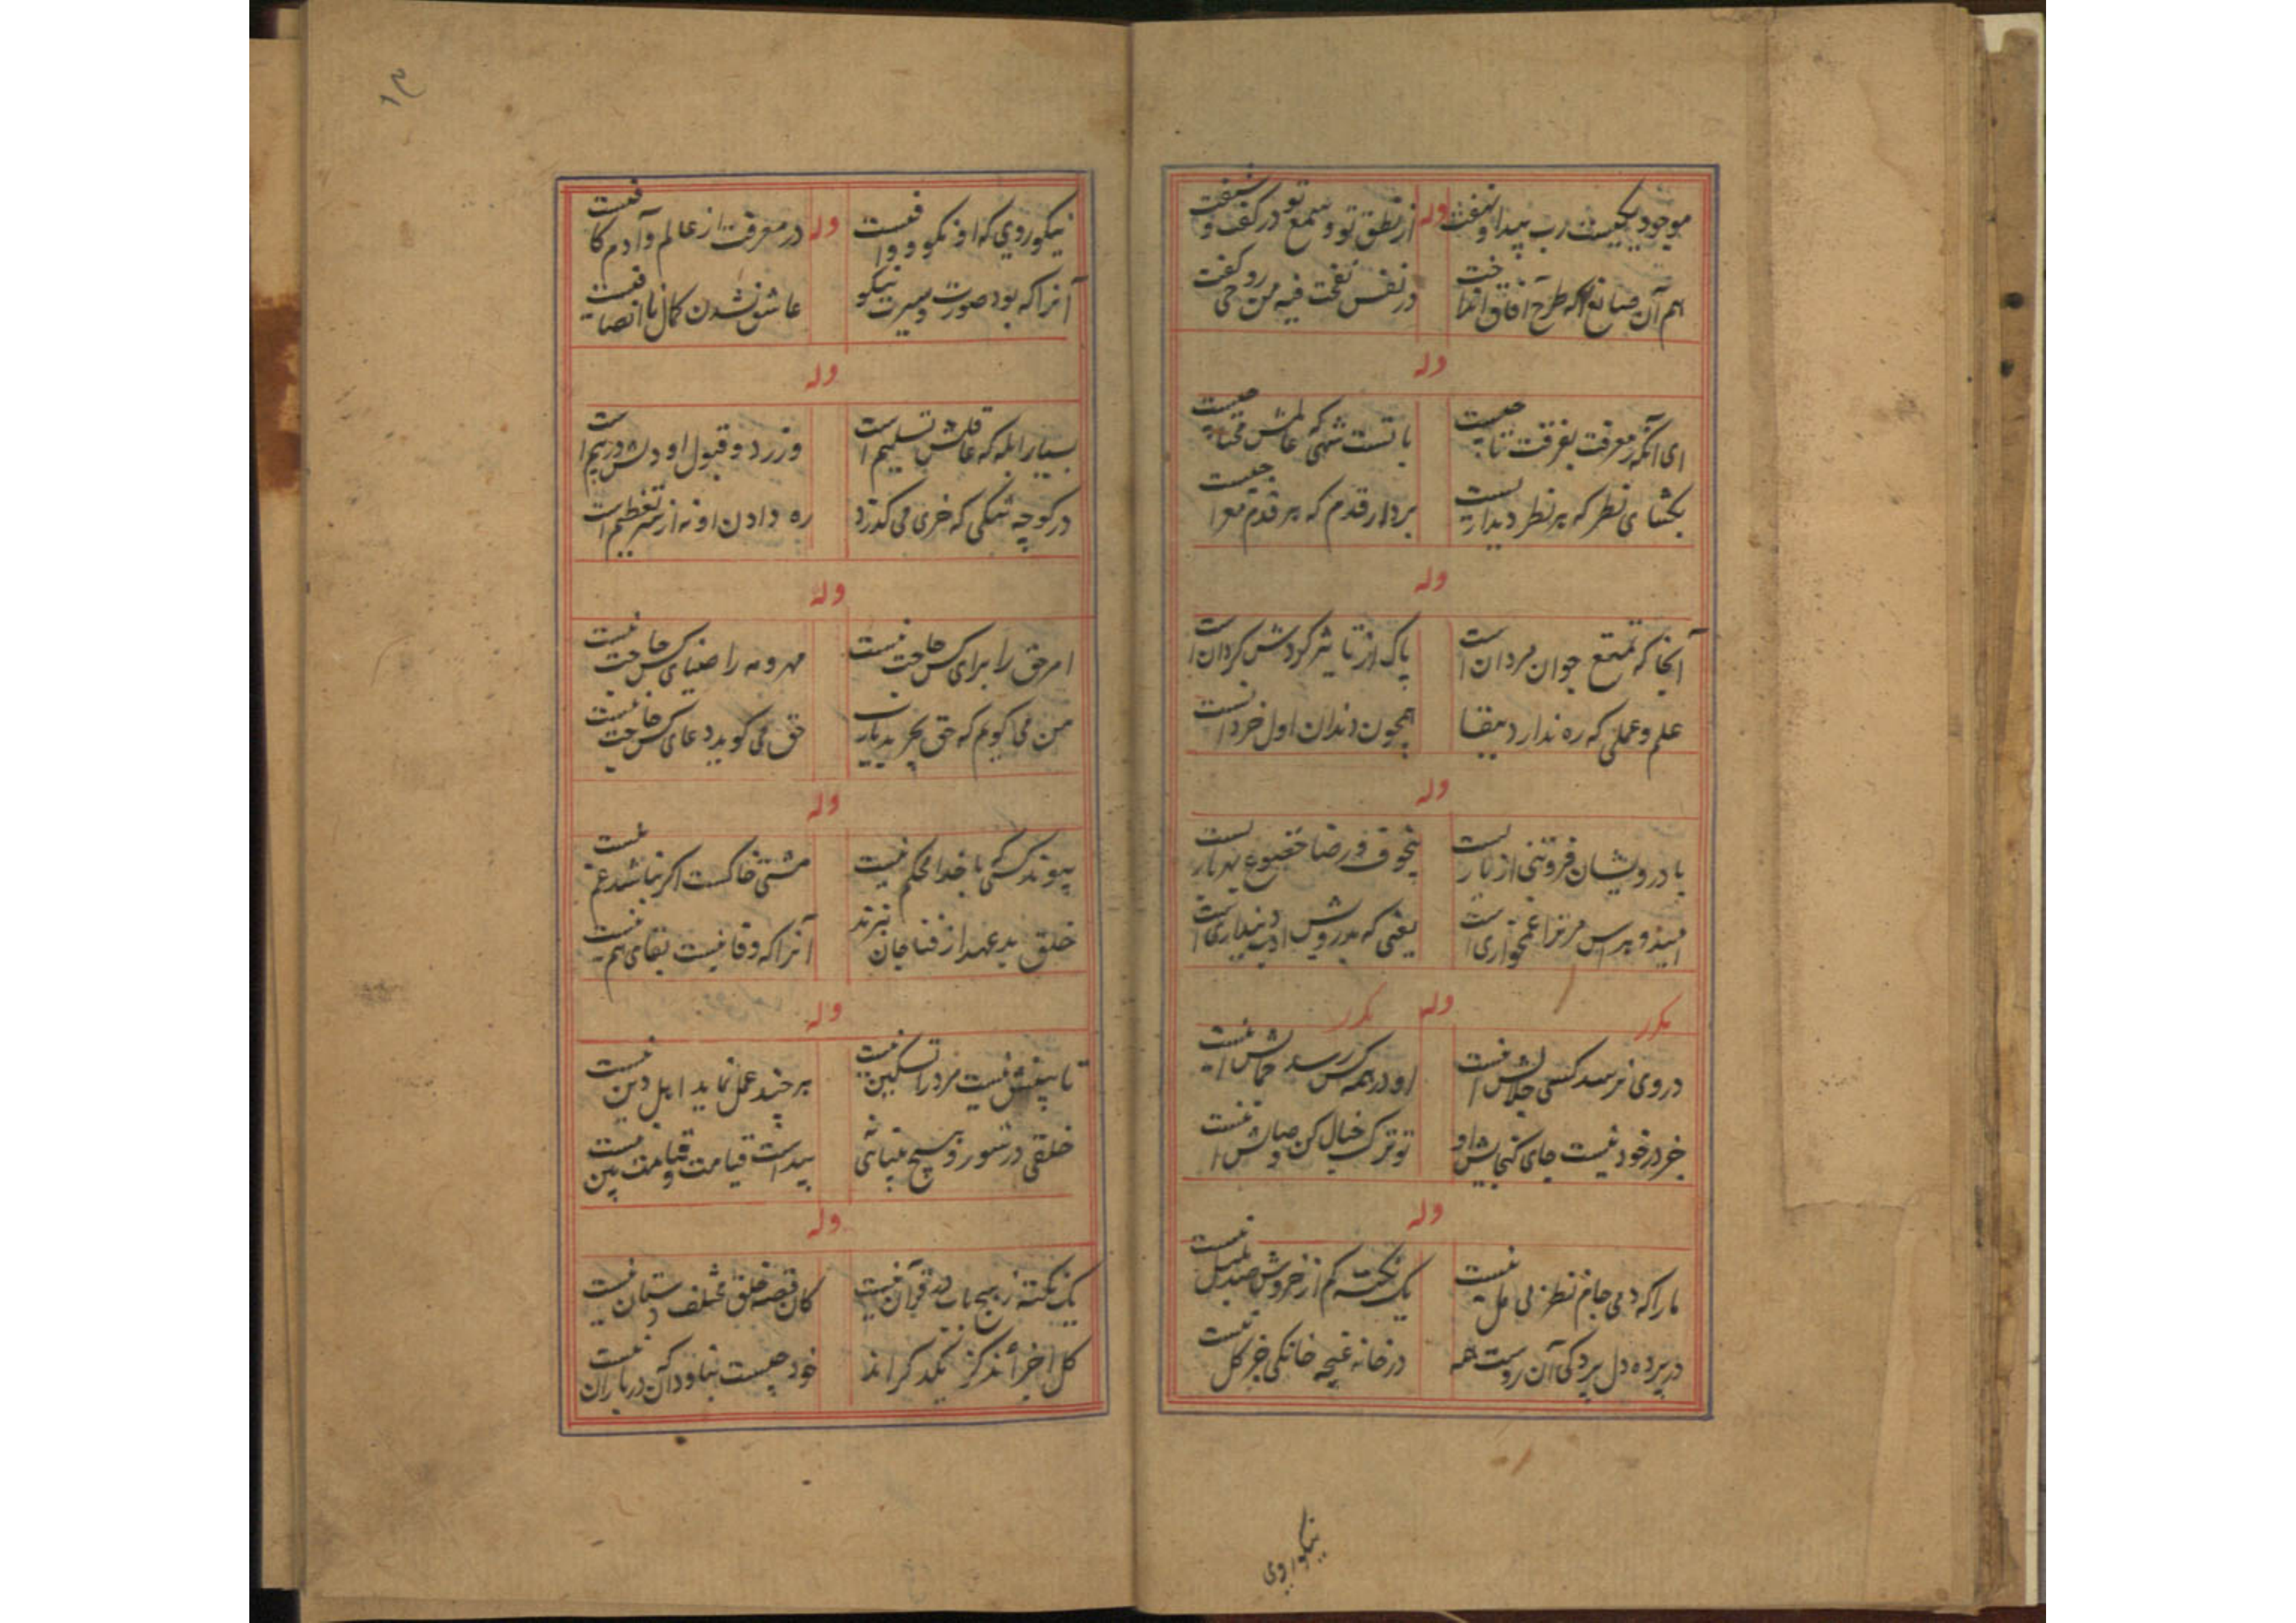 موجود یکیست رب پیدا و نهفت وله از نطق تو و سمع تو در گفت و شنفت
هم آن صانع که طرح آفاق انداخت در نفس نفخت فیه من روحی گفت
وله
ای آنکه معرفت بغرقت تا چیست با تست شهی که عالمش محتا چیست
بگشای نظر که هر نظر دیداریست بردار قدم که هر قدم معراجیست
وله
آنجا که تمتع جوان مردان است پاک از تاثیر گردش گردان است
علم و عملی که ره ندارد ببقا همچون دندان اول خردانست
وله
با درویشان فروتنی از ناریست بیخوف و رضا خضوع
امید و هراس مر ترا غمخواری است یعنی که بدرویش ادب دینداری است
مکرر وله مکرر
در وی نرسد کسی جلالش اینست او در همه کس رسد جمالش اینست
جز در خود نیست جای گنجایش او تو ترک خیال کن وصالش اینست
وله
ما را که دمی جام نظر بی مل نیست یک نکته کم از خروش صد بلبل نیست
در پرده دل پردگی آن روست همه در خانه غنچه خانگی جز گل نیست
نیکوروی
۱۳
نیکوروی که او نکو و وافیست وله در معرفت از عالم و آدم کافیست
آنرا که بود صورت و سیرت نیکو عاشق نشدن کمال ناانصافیست
وله
بسیار ابله که عاقلش تسلیم است وز رد و قبول او دلش در بیم است
در کوچه تنگی که خری می گذرد ره دادن او نه از سر تعظیم است
وله
امر حق را برای کس حاجت نیست مهر و مه را ضیای کس حاجت نیست
من می گویم که حق بخرید یارب حق می گوید دعای کس حاجت نیست
وله
پیوند کسی با خدا محکم نیست مشتی خاکست اگر نباشد غم نیست
خلق بد عهد از فنا جان نبرند آنرا که وفا نیست بقای هم نیست
وله
تا بینش نیست مرد را تسکین نیست هر چند عمل نماید اهل دین نیست
خلقی در شور و هیچ بینائی نه پیداست قیامت و قیامت بین نیست
وله
یک نکته ز هیچ باب در قرآن نیست کان قصه خلق مختلف دستان نیست
کل اجزأند کز یکدگراند خود چیست نباود که آن در باران نیست